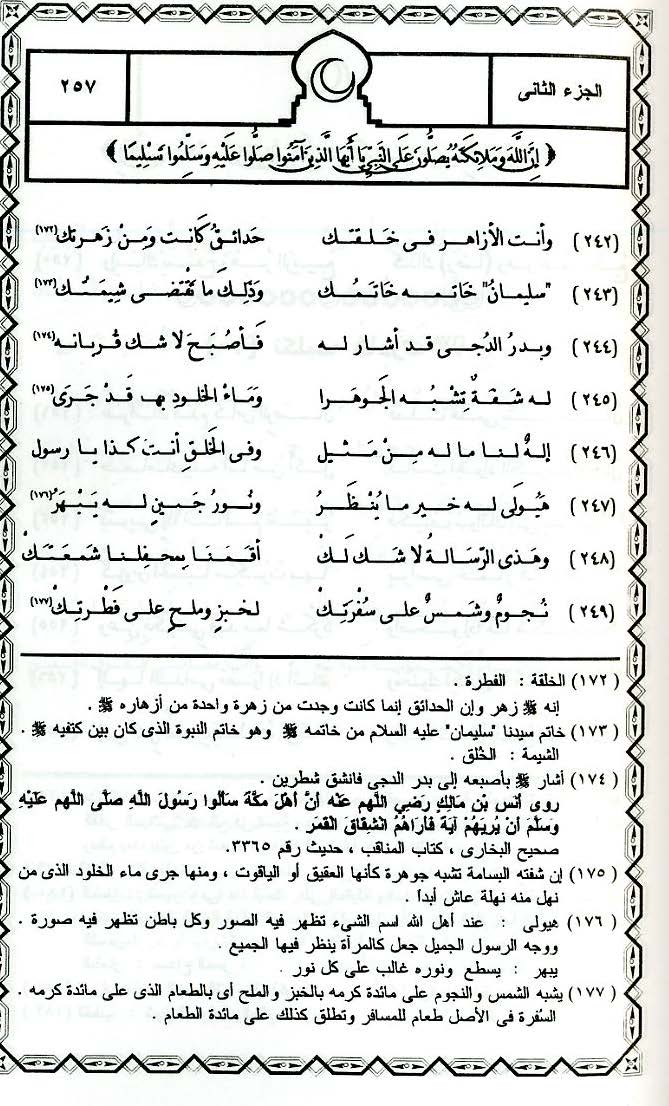 الجزء الثانى
٢٥٧
﴿ إِنَّ اللَّهَ وَمَلَائِكَتَهُ يُصَلُّونَ عَلَى النَّبِيِّ يَا أَيُّهَا الَّذِينَ آمَنُوا صَلُّوا عَلَيْهِ وَسَلِّمُوا تَسْلِيمًا ﴾
( ٢٤٢ ) وأنت الأزاهر فى خلقتك حدائقُ كَانت وَمِنْ زَهرتك (١٧٢)
( ٢٤٣ ) "سليمانُ" خاتمه خاتمُك وَذَلِكَ مَا يَقْتَضى شِيمَتُك (١٧٣)
( ٢٤٤ ) وبدرُ الدُجى قد أشار له فَأصْبَحَ لا شك قُربانه (١٧٤)
( ٢٤٥ ) له شفةٌ تِشْبُه الجَوهَرا وَمَاءُ الخلودِ بها قَدْ جَرَى (١٧٥)
( ٢٤٦ ) إلهٌ لنا ما له مِنْ مَثيل وفى الخَلقِ أنتَ كذا يا رسول
( ٢٤٧ ) هَيُولَى له خير ما يُنْظَرُ ونُورُ جَبينٍ له يَبْهَرُ (١٧٦)
( ٢٤٨ ) وهَذى الرِّسَالةُ لا شك لَكْ أقمنَا بِمحفِلنا شمعَتَكْ
( ٢٤٩ ) نُجومٌ وشمسٌ على سُفْرَتِكْ لخبزٍ وملحٍ على فَطْرتِكْ (١٧٧)
( ١٧٢ ) الخلقة : الفطرة .
إنه ﷺ زهر وإن الحدائق إنما كانت وجدت من زهرة واحدة من أزهاره ﷺ .
( ١٧٣ ) خاتم سيدنا "سليمان" عليه السلام من خاتمه ﷺ وهو خاتم النبوة الذى كان بين كتفيه ﷺ .
الشيمة : الخُلق .
( ١٧٤ ) أشار ﷺ بأصبعه إلى بدر الدجى فانشق شطرين .
روى أنس بْن مَالِكٍ رَضِيَ اللَّهم عَنْه أنَّ أهْلَ مَكَّةَ سَألُوا رَسُولَ اللَّهِ صَلَّى اللَّهم عَلَيْهِ
وَسَلَّمَ أنْ يُرِيَهُمْ آيَةً فَأرَاهُمُ انْشِقَاقَ الْقَمَرِ .
صحيح البخارى ، كتاب المناقب ، حديث رقم ٣٣٦٥ .
( ١٧٥ ) إن شفته البسامة تشبه جوهرة كأنها العقيق أو الياقوت ، ومنها جرى ماء الخلود الذى من
نهل منه نهلة عاش أبداً .
( ١٧٦ ) هيولى : عند أهل الله اسم الشيء تظهر فيه الصور وكل باطن تظهر فيه صورة .
ووجه الرسول الجميل جعل كالمرآة ينظر فيها الجميع .
يبهر : يسطع ونوره غالب على كل نور .
( ١٧٧ ) يشبه الشمس والنجوم على مائدة كرمه بالخبز والملح أى بالطعام الذى على مائدة كرمه .
السُفرة فى الأصل طعام للمسافر وتطلق كذلك على مائدة الطعام .